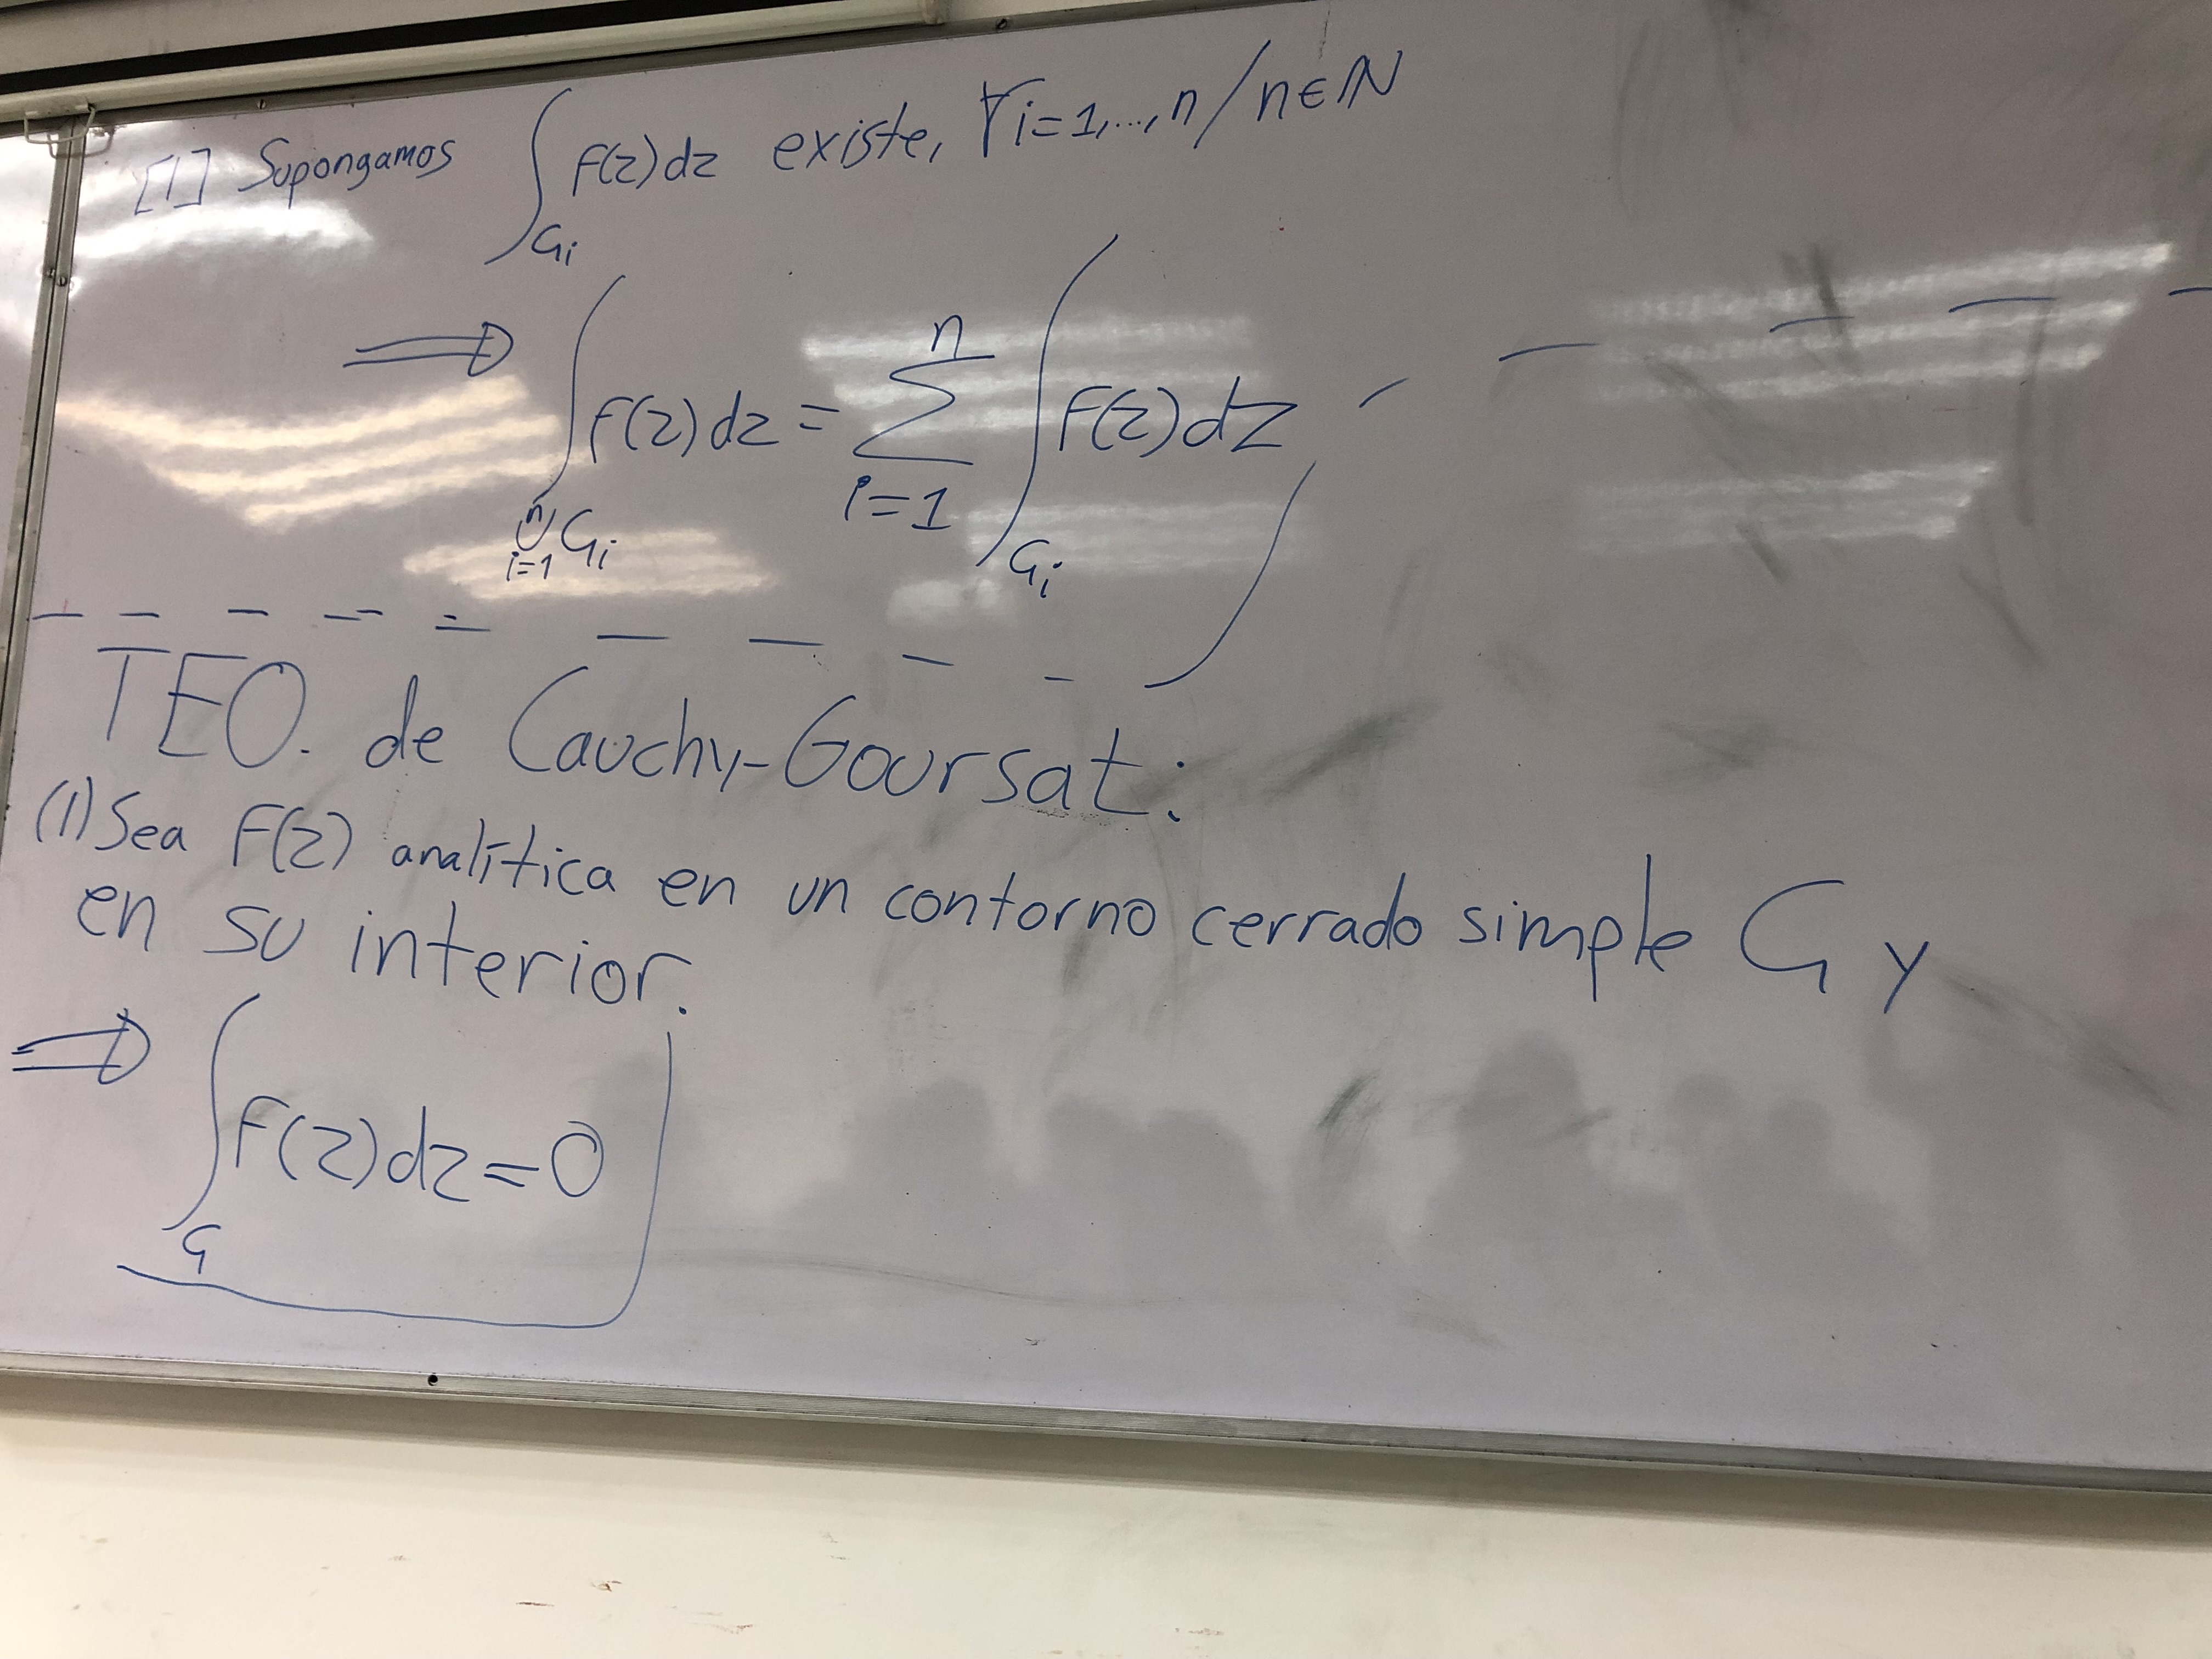 [1] Supongamos ∫_{G_i} f(z)dz existe, ∀i=1,...,n/n∈ℕ
⟹ ∫_{⋃_{i=1}^{n} G_i} f(z)dz = ∑_{i=1}^{n} ∫_{G_i} f(z)dz
TEO. de Cauchy-Goursat:
(1) Sea f(z) analítica en un contorno cerrado simple G y
en su interior.
⟹ ∫_G f(z)dz=0